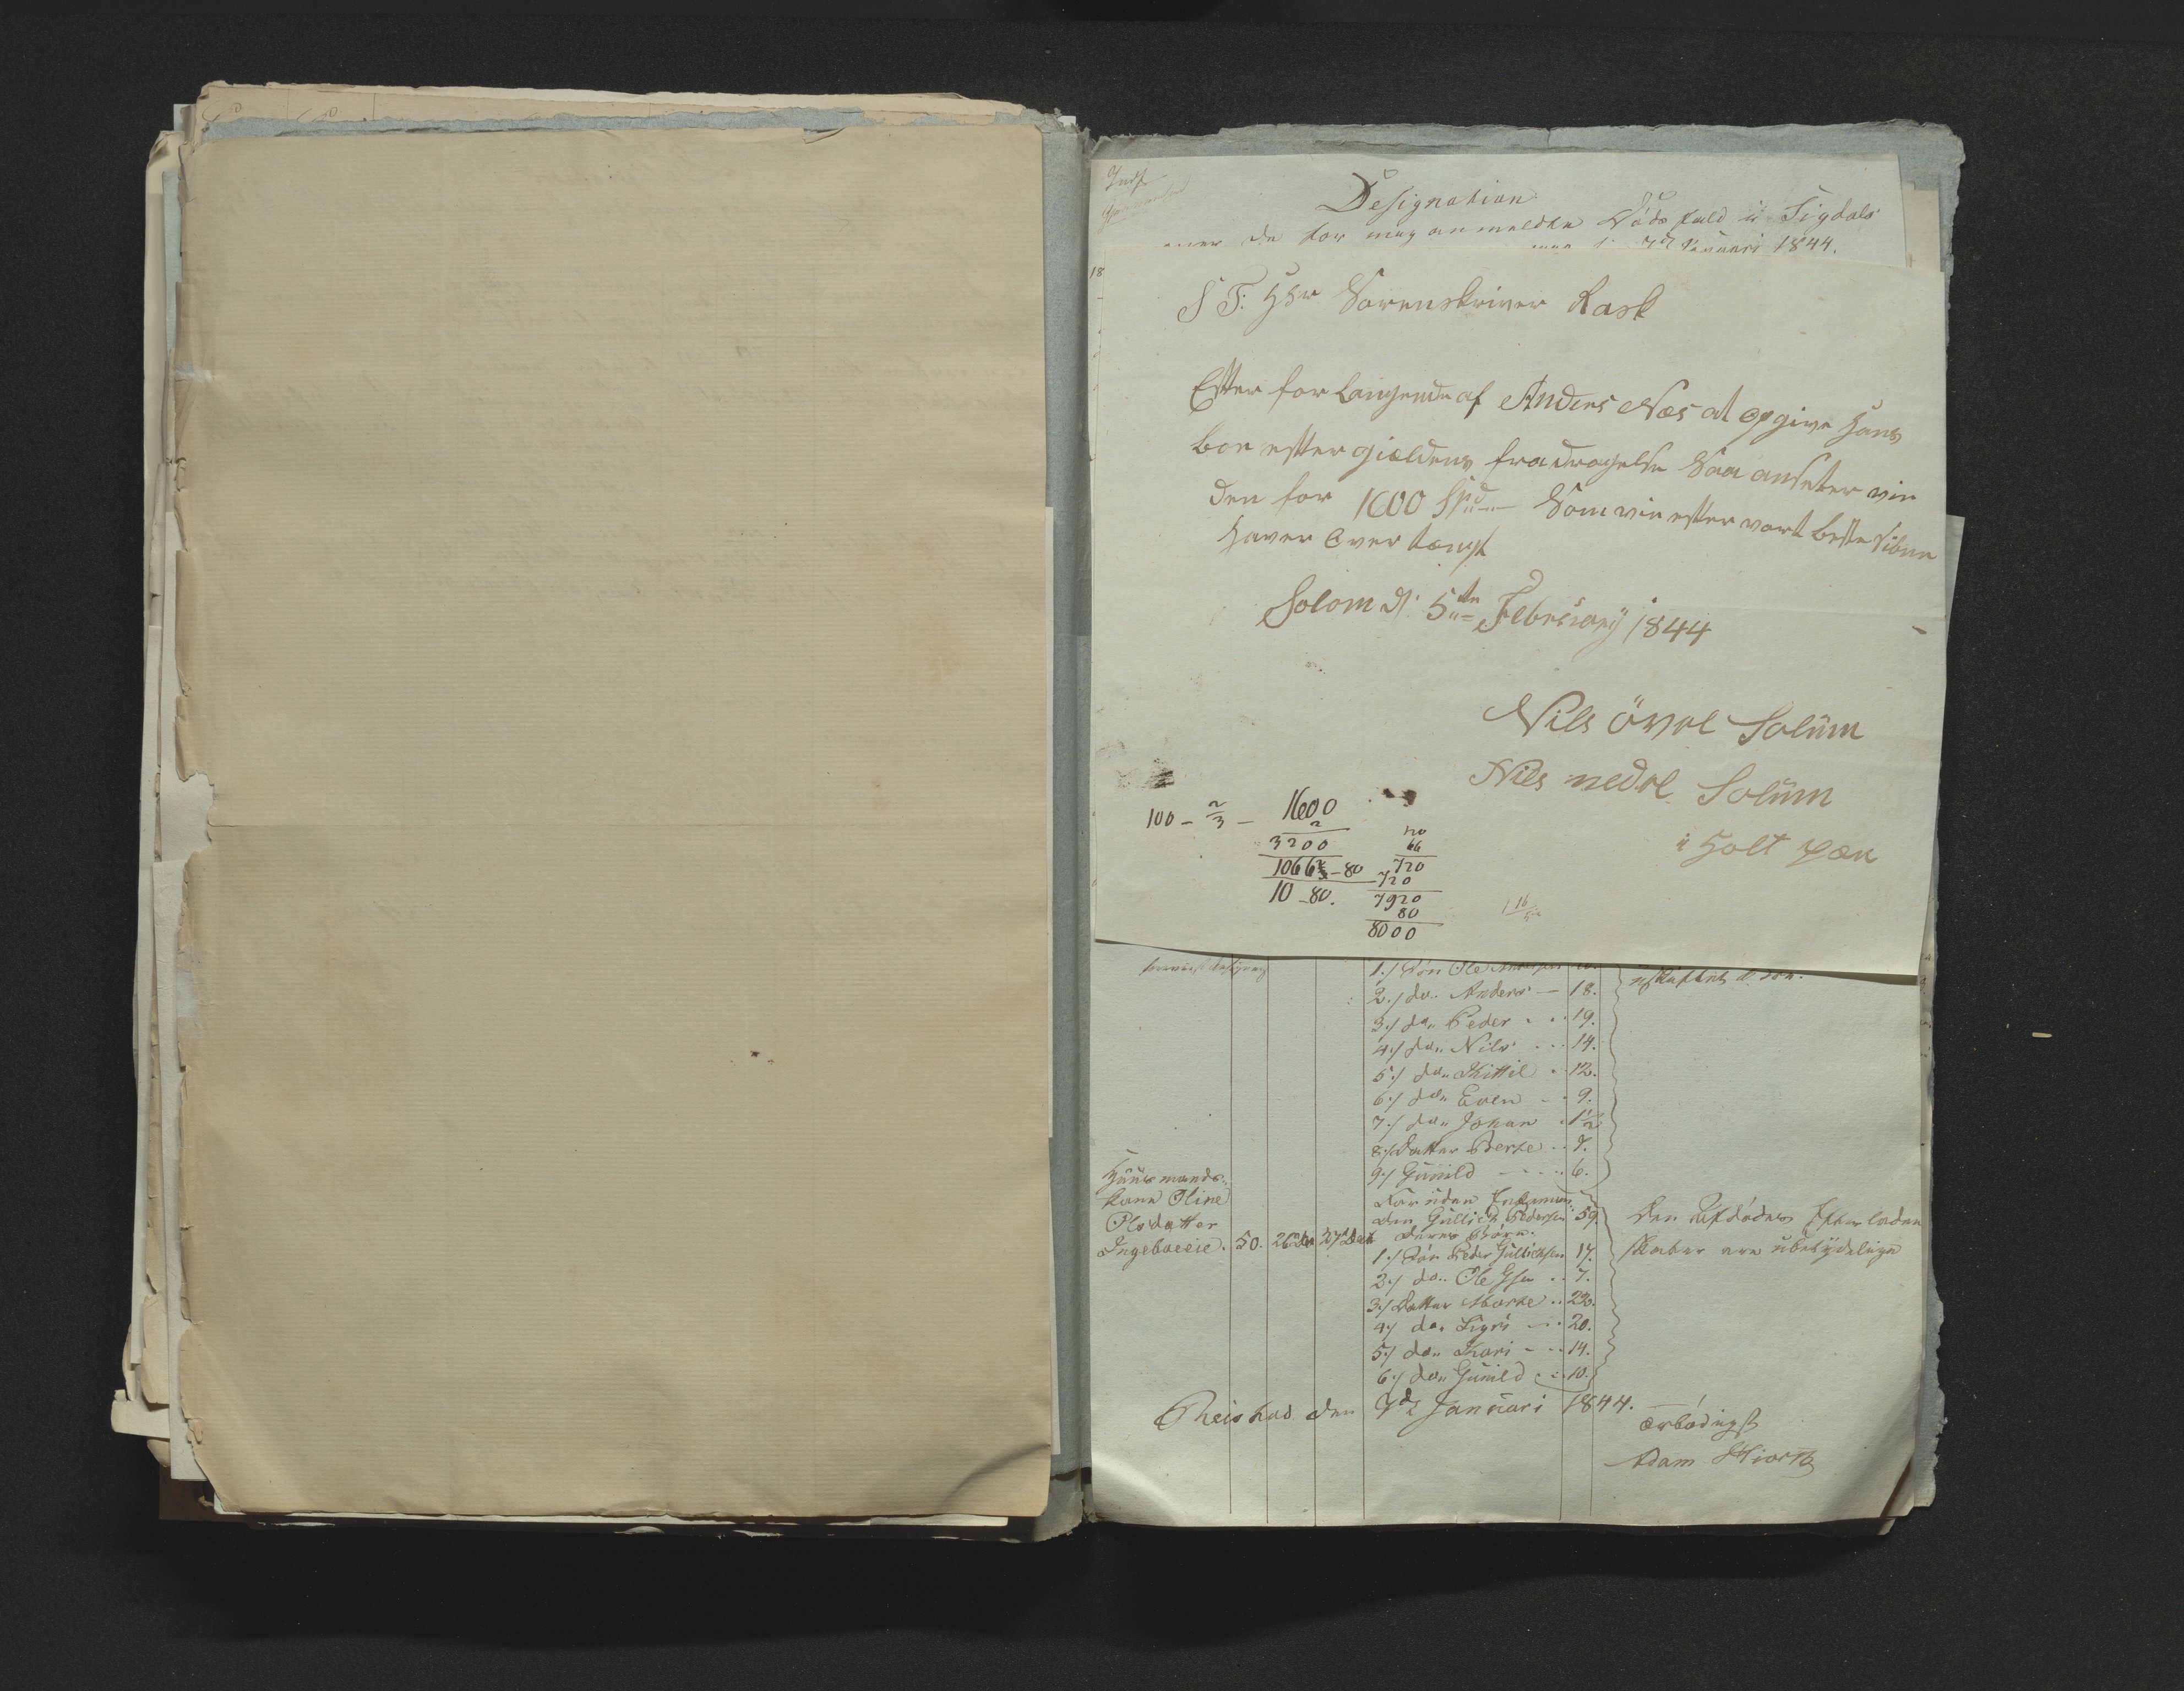 Designation
over de for meg anmeldte Dødsfald i Sigdals
7d Januari 1844.
18
S T: Hr Sorenskriver Rask
Efter forlangende af Anders Næs at opgive hans
boe efter gieldens fradragelse Saa ansetter vie
den for 1600 Spd Som vie efter vort beste Sibne
haver Over tængt
Solom d: 5te Februarÿ 1844
Nils övre Solum
Nils nedre Solum
i Holt
100 - 2/3 - 1600
2
3200
1066 2/3 - 80
10 - 80.
120
66
720
720
7920
80
8000
1.) Søn Ole
2.) do. Anders — 18.
3.) do. Peder . . . 19.
4.) do. Nils . . . 14.
5.) do. Kittil . . 12.
6.) do. Even . . 9.
7.) do. Johan . 1½
8.) Datter Berte . . 7.
9.) Gunild - - - . . 6.
Huusmands-
kone Oline
Olsdatter
Ingeboeeie. 50. 26de 27de
Den Gullich Pedersen 59
deres Børn.
1.) Søn Peder Gullichsen 17.
2.) do. Ole . . 7.
3.) Datter Marte . . 22.
4.) do. Sigri . . 20.
5.) do. Kari - - . . 14.
6.) do. Gunild . . . 10.
Den Afdødes Efterladen
skaber ere ubetydelige
den 7de Januari 1844.
ærbødigst
Adam Hiorth